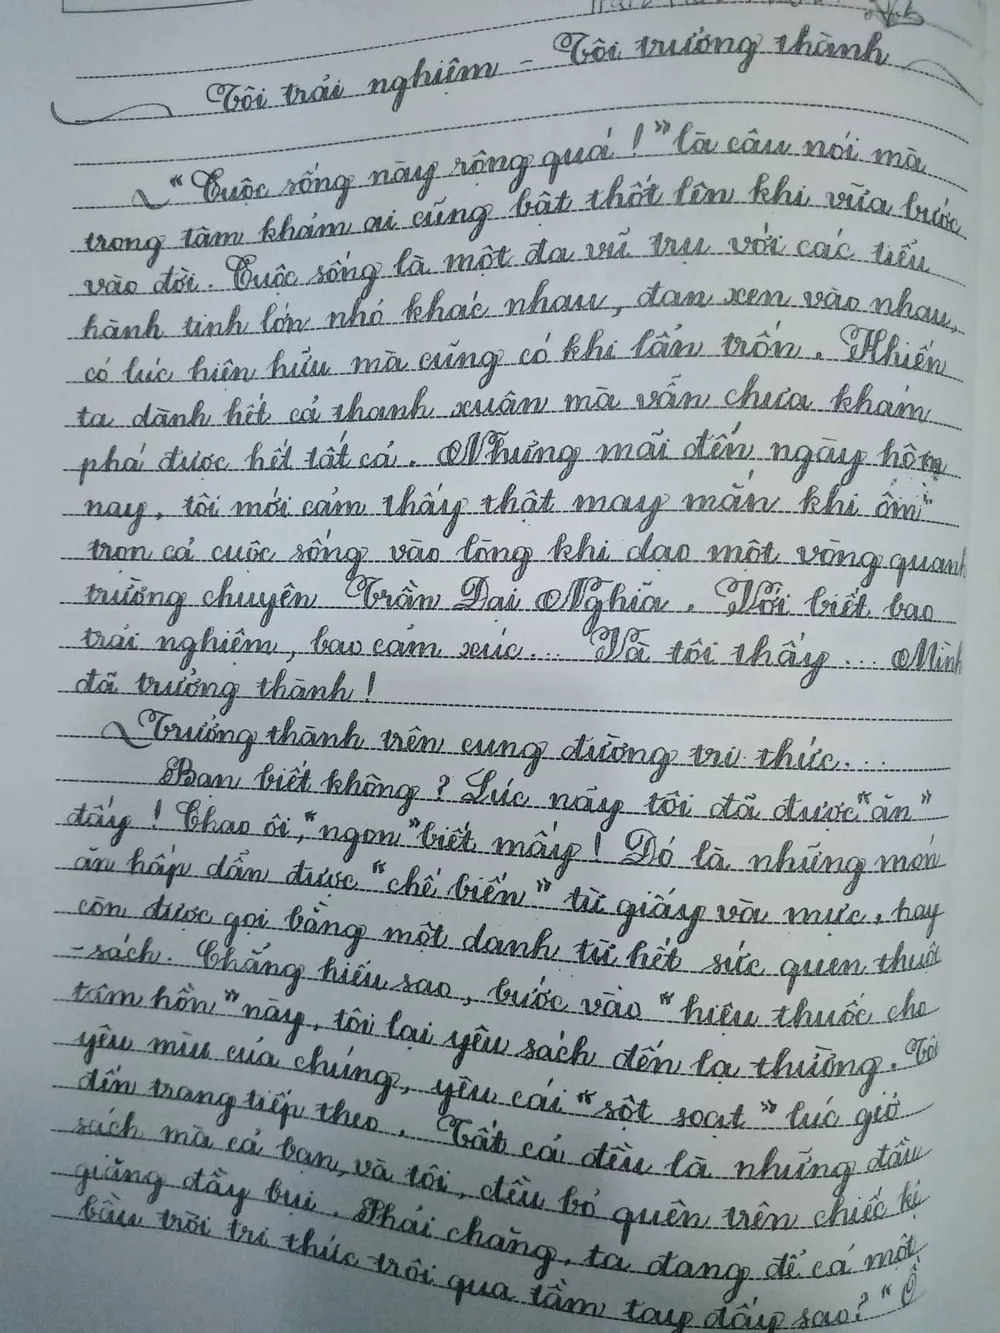 Tôi trải nghiệm - Tôi trưởng thành
"Cuộc sống này rộng quá!" là câu nói mà
trong tâm khảm ai cũng bật thốt lên khi vừa bước
vào đời. Cuộc sống là một đa vũ trụ với các tiểu
hành tinh lớn nhỏ khác nhau, đan xen vào nhau,
có lúc hiện hữu mà cũng có khi lẩn trốn. Khiến
ta dành hết cả thanh xuân mà vẫn chưa khám
phá được hết tất cả. Nhưng mãi đến ngày hôm
nay, tôi mới cảm thấy thật may mắn khi ôm
trọn cả cuộc sống vào lòng khi dạo một vòng quanh
trường chuyên Trần Đại Nghĩa. Với biết bao
trải nghiệm, bao cảm xúc... Và tôi thấy... Mình
đã trưởng thành!
Trưởng thành trên cung đường tri thức...
Bạn biết không? Lúc nãy tôi đã được "ăn"
đấy! Chao ôi, "ngon" biết mấy! Đó là những món
ăn hấp dẫn được "chế biến" từ giấy và mực, hay
còn được gọi bằng một danh từ hết sức quen thuộc
- sách. Chẳng hiểu sao, bước vào "hiệu thuốc cho
tâm hồn" này, tôi lại yêu sách đến lạ thường. Tôi
yêu mùi của chúng, yêu cái "sột soạt" lúc giở
đến trang tiếp theo. Tất cả đều là những đầu
sách mà cả bạn, và tôi, đều bỏ quên trên chiếc kệ
giăng đầy bụi. Phải chăng, ta đang để cả một
bầu trời tri thức trôi qua tầm tay đấy sao? "Ồ